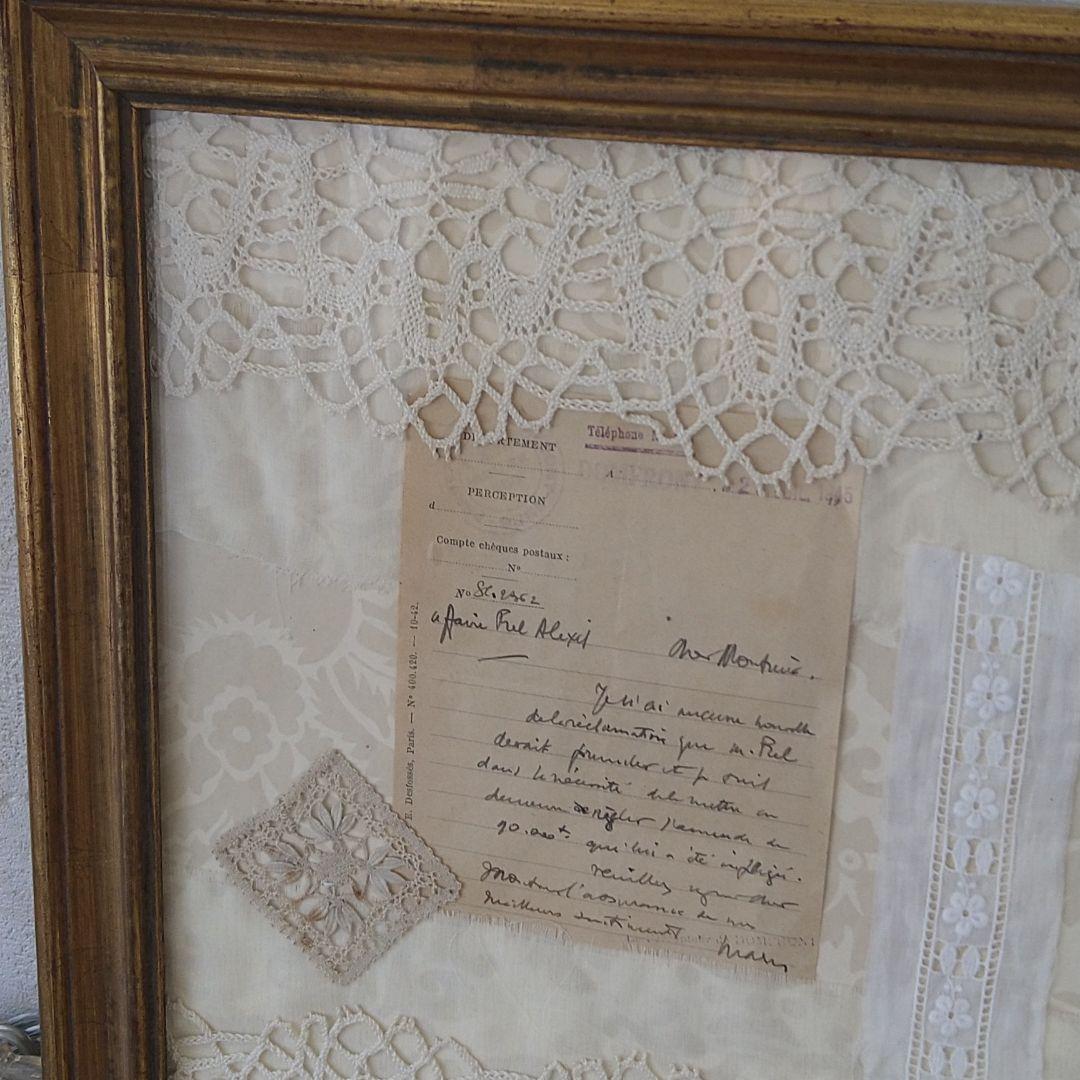 DÉPARTEMENT
Téléphone N
A
PERCEPTION
d
Compte chèques postaux :
N°
N° 2962
affaire Frel Alexis
Cher Monsieur.
Je n'ai aucune nouvelle
de la réclamation que M. Frel
devait formuler et je suis
dans la nécessité de le mettre en
demeure de régler l'amende de
90.000 qui lui a été infligée.
Veuillez agréer cher
Monsieur l'assurance de mes
meilleurs sentiments
E. Desfossés, Paris. — N° 400.420. — 10-42.